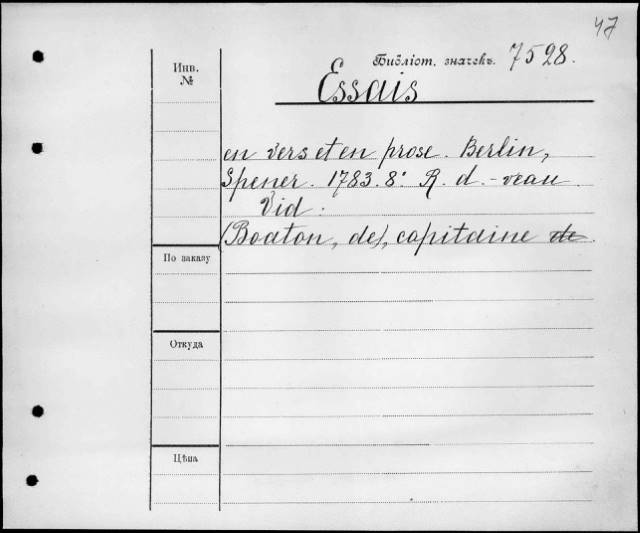 47
Библіот. значекъ. 7528.
Инв.
№
Essais
en vers et en prose. Berlin,
Spener. 1783. 8º R. d.-veau.
Vid:
(Boaton, de), capitaine de.
По заказу
Откуда
Цѣна